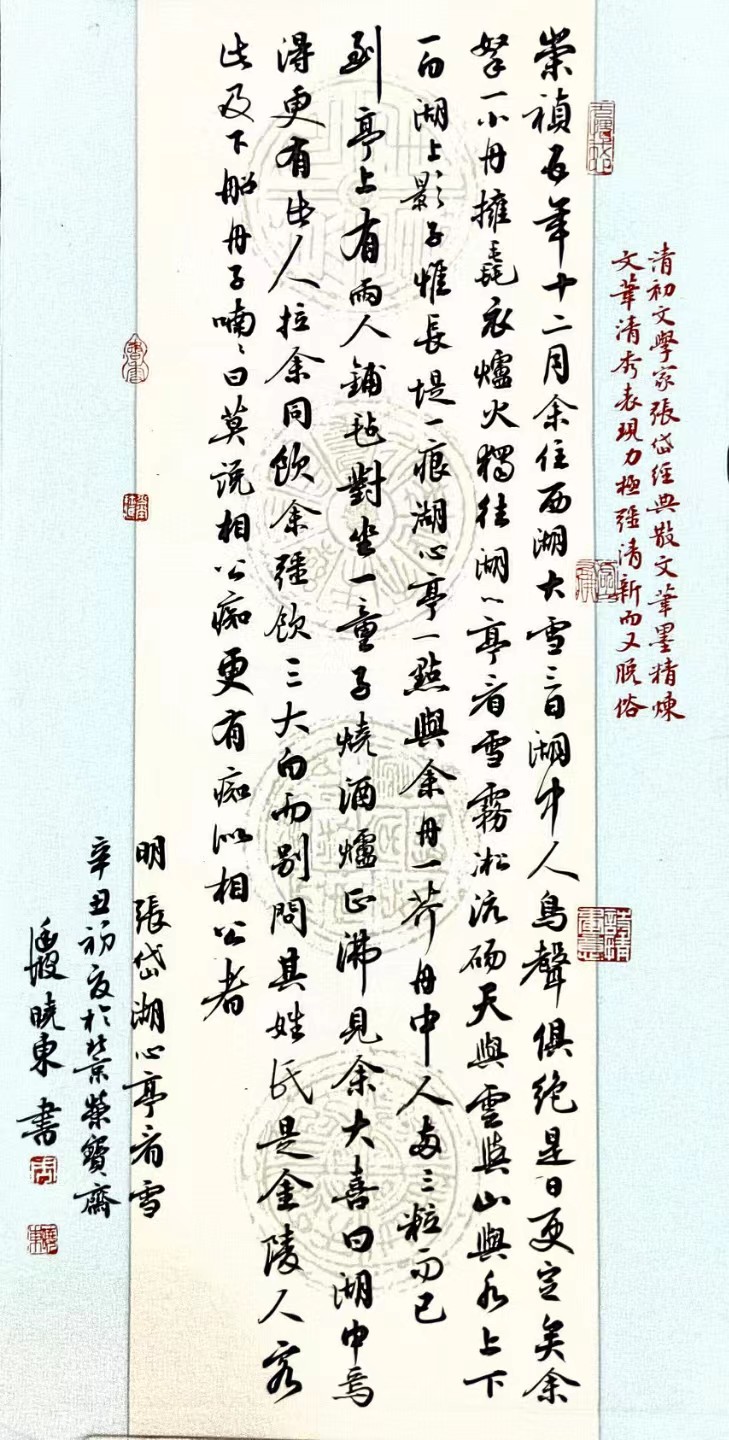 清初文學家張岱經典散文筆墨精煉
文筆清秀表現力極強清新而又脫俗
崇禎五年十二月余住西湖大雪三日湖中人鳥聲俱絕是日更定矣余
拏一小舟擁毳衣爐火獨往湖心亭看雪霧淞沆碭天與雲與山與水上下
一白湖上影子惟長堤一痕湖心亭一點與余舟一芥舟中人兩三粒而已
到亭上有兩人鋪毡對坐一童子燒酒爐正沸見余大喜曰湖中焉
得更有此人拉余同飲余強飲三大白而別問其姓氏是金陵人客
此及下船舟子喃喃曰莫說相公痴更有痴似相公者
明張岱湖心亭看雪
辛丑初夏於北京榮寶齋
曉東書
詩情畫意